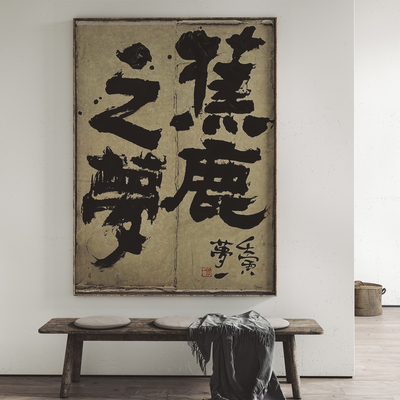 蕉鹿
之夢
壬寅
夢一